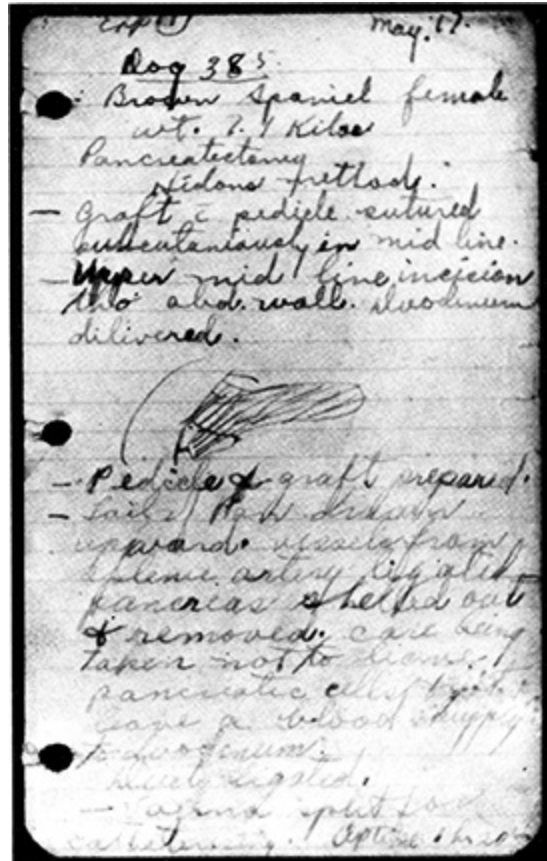 Exp ①
May. 17.
Dog 385
Brown Spaniel female
wt. 7.1 Kilos
Pancreatectomy
Hedons Method.
– Graft c̄ pedicle sutured
subcutaniously in mid line.
– Upper mid line incicion
thro abd. wall. duodinum
dilivered.
– Pedicle & graft prepared.
– Tail of Pan drawn
upward. vessels from
splenic artery ligated
pancreas shelled out
& removed. care being
taken not to leave
pancreatic cells
leave a blood supply
to duodinum.
ligated.
– split for
catheterizing.